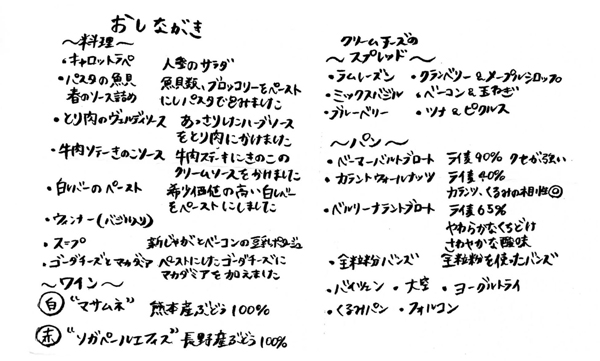 おしながき
〜料理〜
・キャロットラペ 人参のサラダ
・パスタの魚貝 魚貝類、ブロッコリーをペースト
春のソース詰め にしパスタで包みました
・とり肉のヴェルディソース あっさりしたハーブソース
をとり肉にかけました
・牛肉ソテーきのこソース 牛肉ステーキにきのこの
クリームソースをかけました
・白レバーのペースト 希少価値の高い白レバー
をペーストにしました
・ウィンナー(バジル入り)
・スープ 新じゃがとベーコンの豆乳ポタージュ
・ゴーダチーズとマカダミア ペーストにしたゴーダチーズに
マカダミアを加えました
〜ワイン〜
白 "マサムネ" 熊本産ぶどう100%
赤 "ソガペールエフィス" 長野産ぶどう100%
クリームチーズの
〜スプレッド〜
・ラムレーズン ・クランベリー&メープルシロップ
・ミックスバジル ・ベーコン&玉ねぎ
・ブルーベリー ・ツナ&ピクルス
〜パン〜
・ベーマーバルトブロート ライ麦90% クセが強い
・カラントウォールナッツ ライ麦40%
カランツ、くるみの相性◎
・ベルリーナラントブロート ライ麦65%
やわらかなくちどけ
さわやかな酸味
・全粒粉バンズ 全粒粉を使ったバンズ
・バイツェン ・大空 ・ヨーグルトライ
・くるみパン ・フォルコン